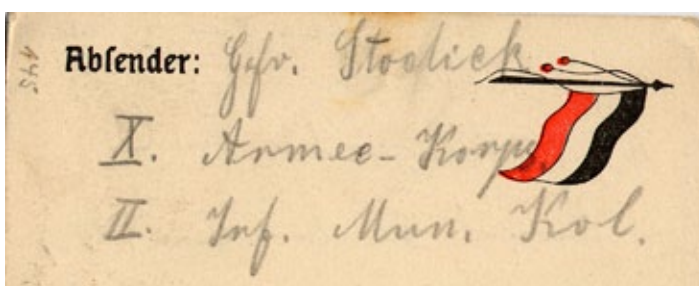 Absender: Gefr. Stodieck
X. Armee-Korps
II. Inf. Mun. Kol.